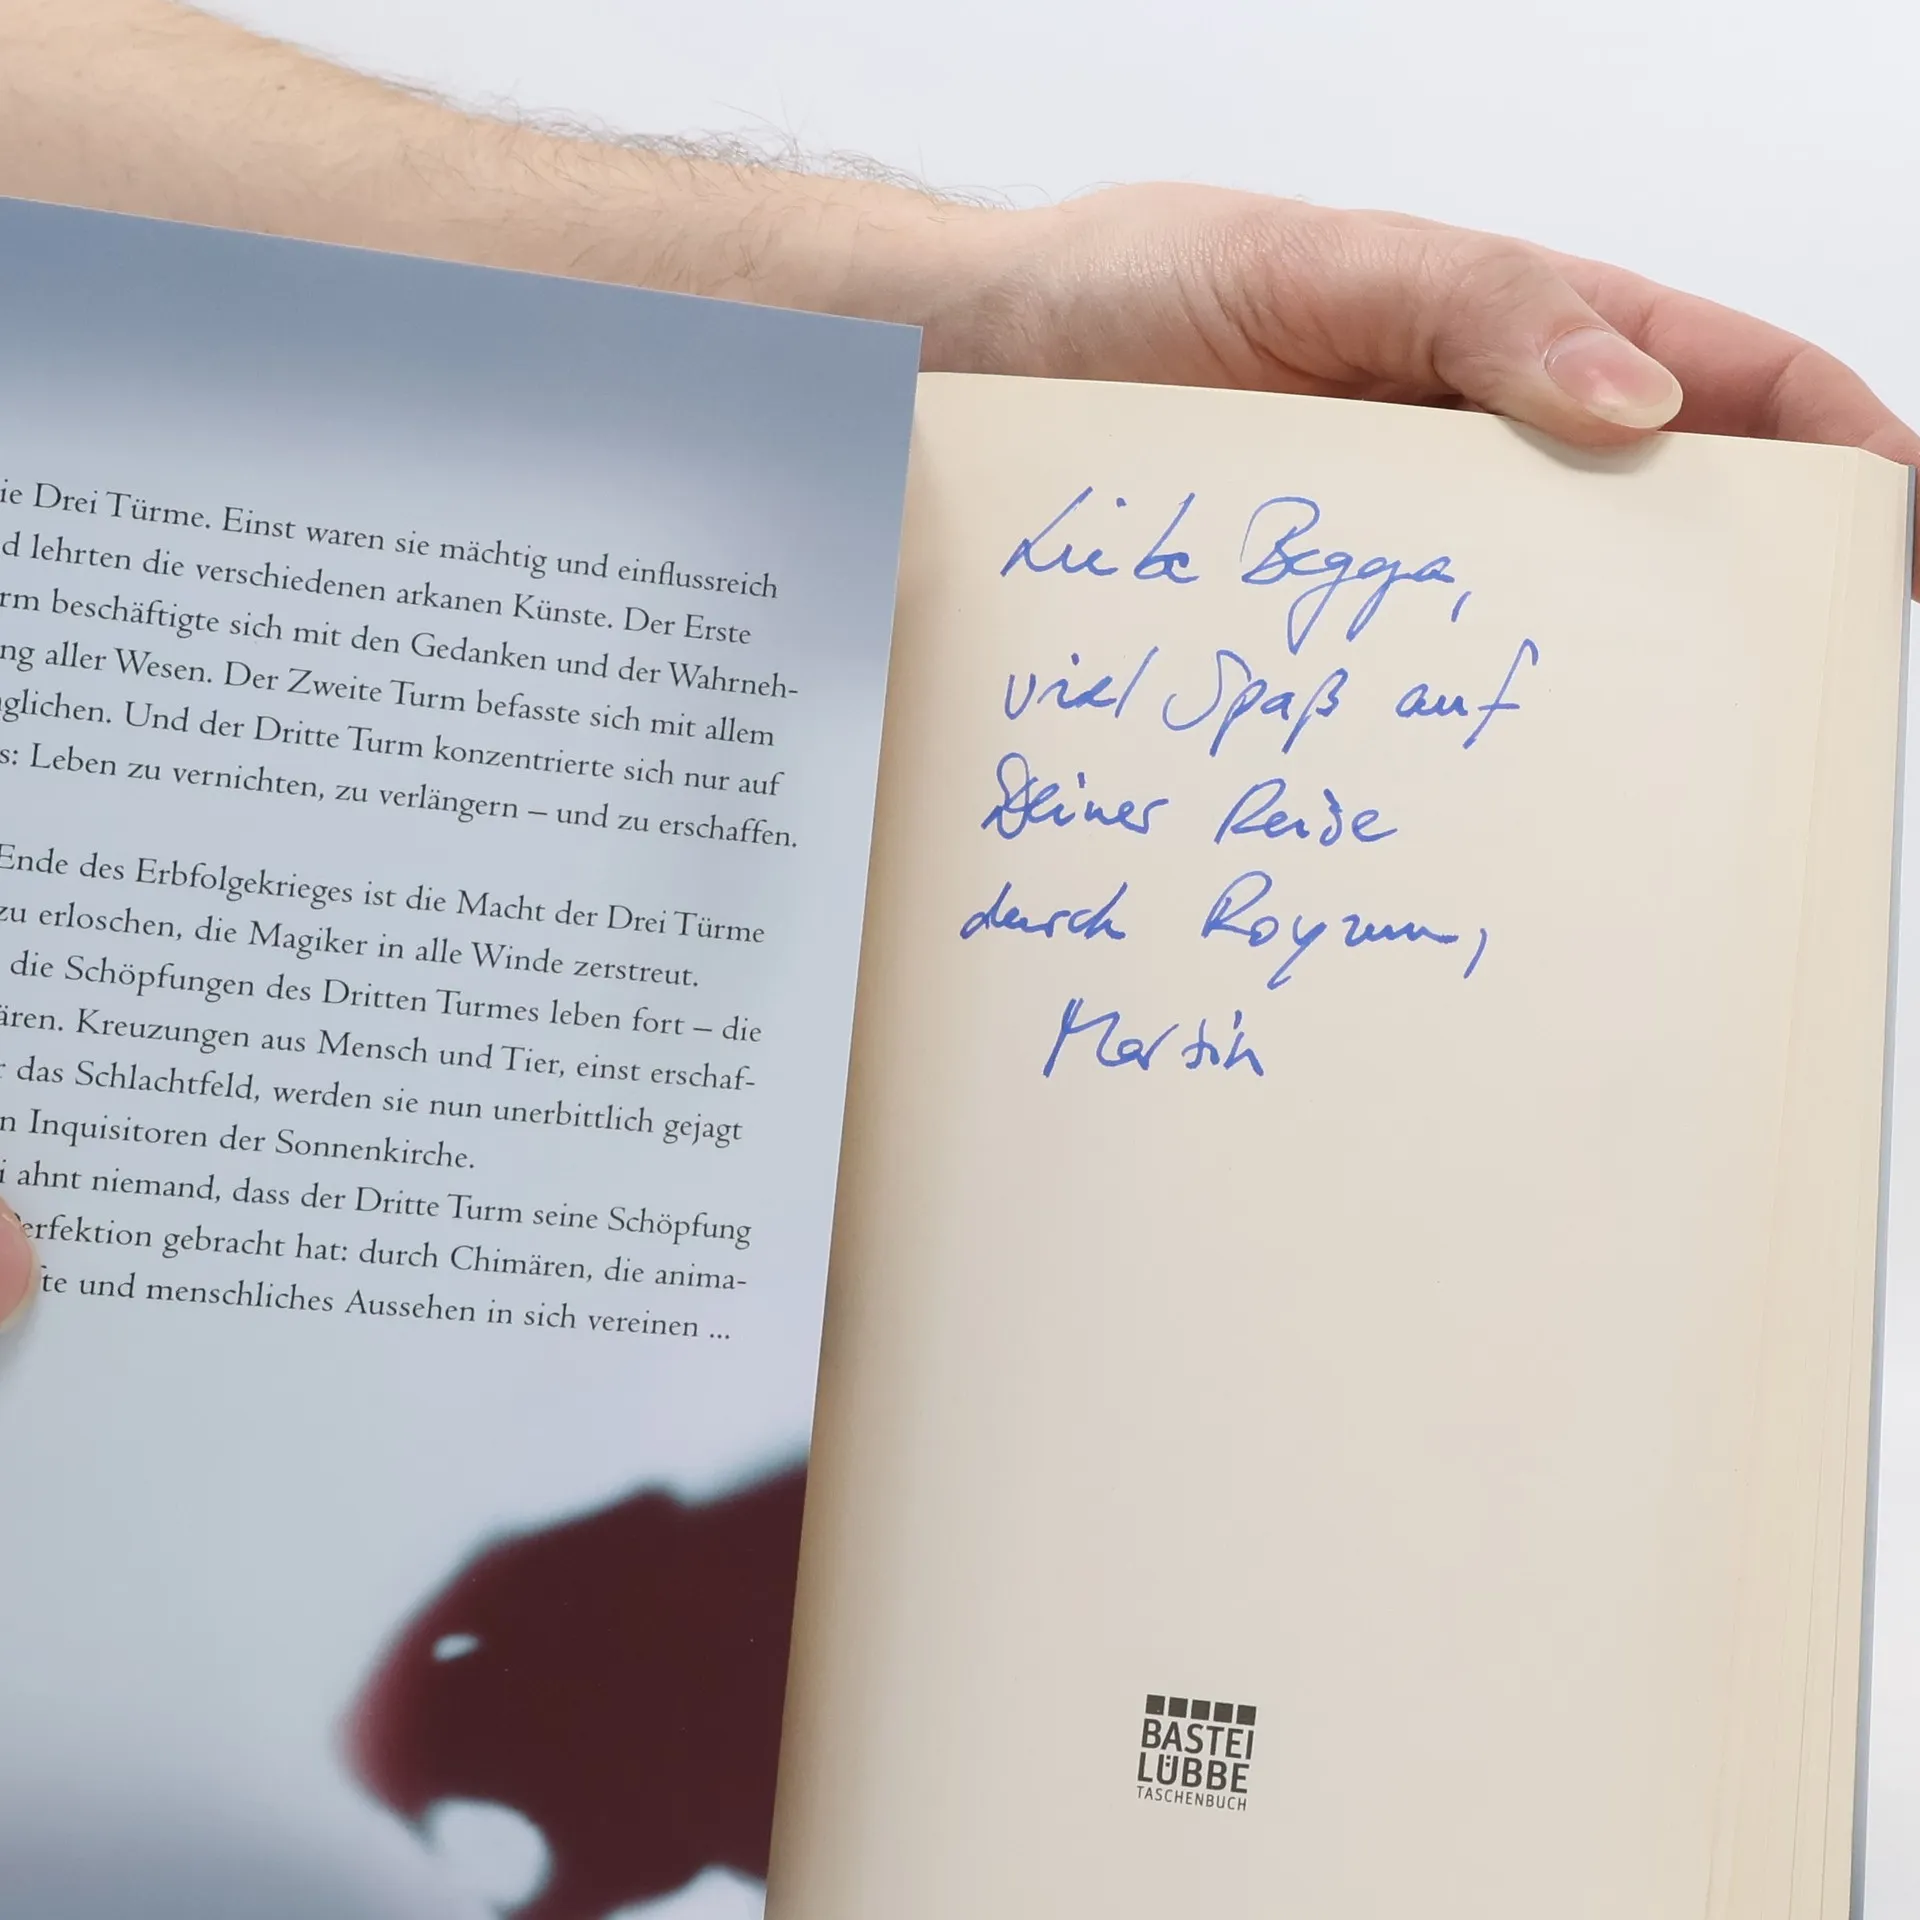 ie Drei Türme. Einst waren sie mächtig und einflussreich
d lehrten die verschiedenen arkanen Künste. Der Erste
rm beschäftigte sich mit den Gedanken und der Wahrneh-
ng aller Wesen. Der Zweite Turm befasste sich mit allem
glichen. Und der Dritte Turm konzentrierte sich nur auf
s: Leben zu vernichten, zu verlängern – und zu erschaffen.
Ende des Erbfolgekrieges ist die Macht der Drei Türme
zu erloschen, die Magiker in alle Winde zerstreut.
die Schöpfungen des Dritten Turmes leben fort – die
ären. Kreuzungen aus Mensch und Tier, einst erschaf-
r das Schlachtfeld, werden sie nun unerbittlich gejagt
n Inquisitoren der Sonnenkirche.
i ahnt niemand, dass der Dritte Turm seine Schöpfung
Perfektion gebracht hat: durch Chimären, die anima-
fte und menschliches Aussehen in sich vereinen ...
Liebe Begga,
viel Spaß auf
Deiner Reise
durch Royzum,
Martin
BASTEI
LÜBBE
TASCHENBUCH